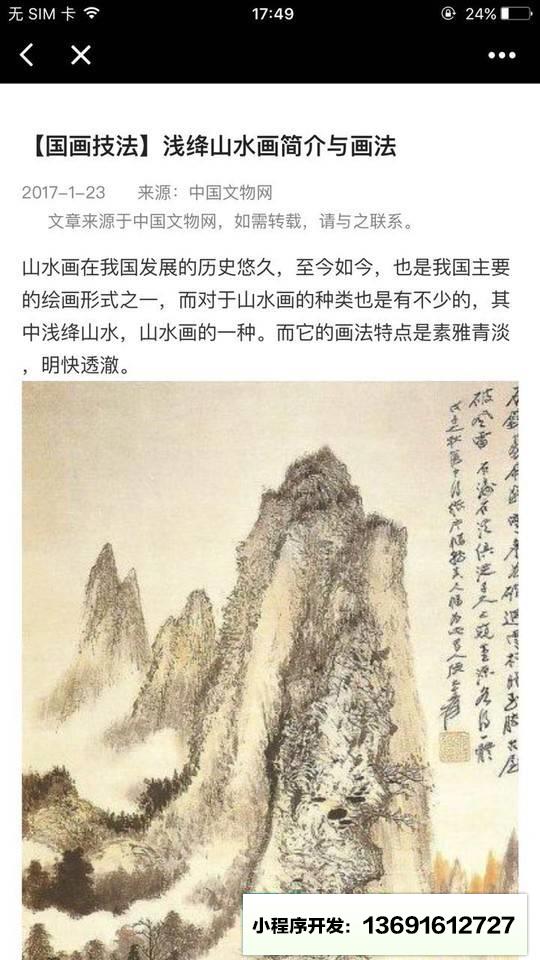 无 SIM 卡
17:49
24%
【国画技法】浅绛山水画简介与画法
2017-1-23 来源：中国文物网
文章来源于中国文物网，如需转载，请与之联系。
山水画在我国发展的历史悠久，至今如今，也是我国主要
的绘画形式之一，而对于山水画的种类也是有不少的，其
中浅绛山水，山水画的一种。而它的画法特点是素雅青淡
，明快透澈。
小程序开发：13691612727